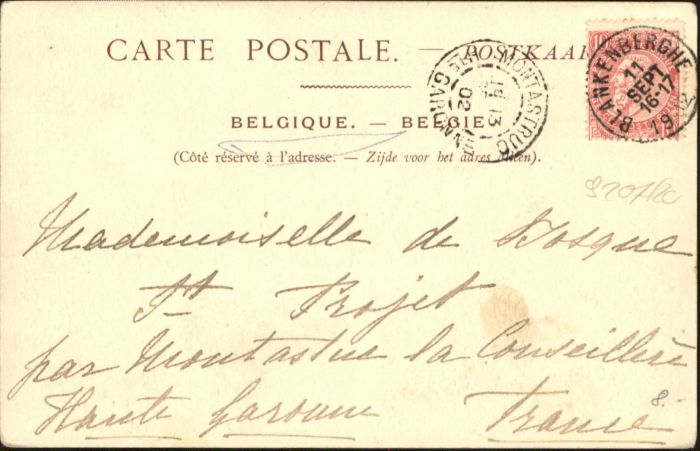 CARTE POSTALE. — POSTKAAR
BELGIQUE. — BELGIE
(Côté réservé à l'adresse. — Zijde voor het adres alleen).
MONTASTRUC
13
02
HTE GARONNE
BLANKENBERGHE
11
SEPT
16-17
19
10
Mademoiselle de Bosque
St Projet
par Montastruc la Conseillère
Haute Garonne France
8.-